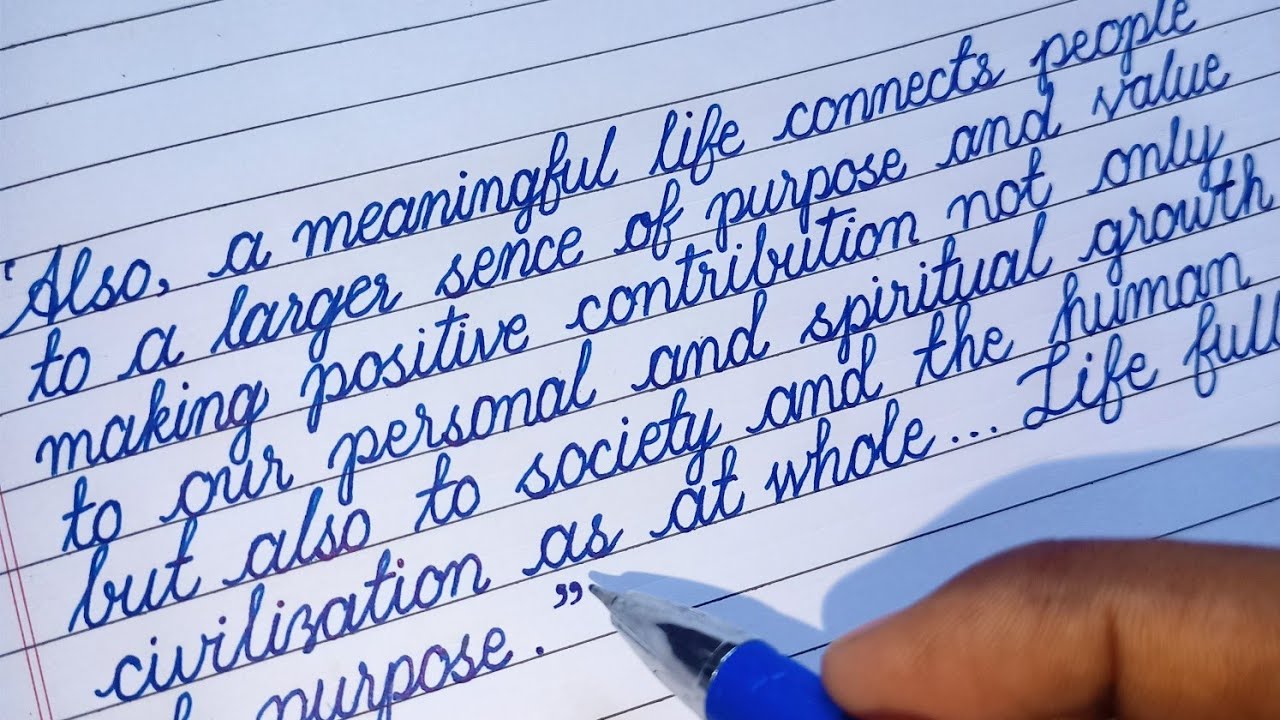 "Also, a meaningful life connects people
to a larger sence of purpose and value
making positive contribution not only
to our personal and spiritual growth
but also to society and the human
civilization as at whole... Life full
purpose."